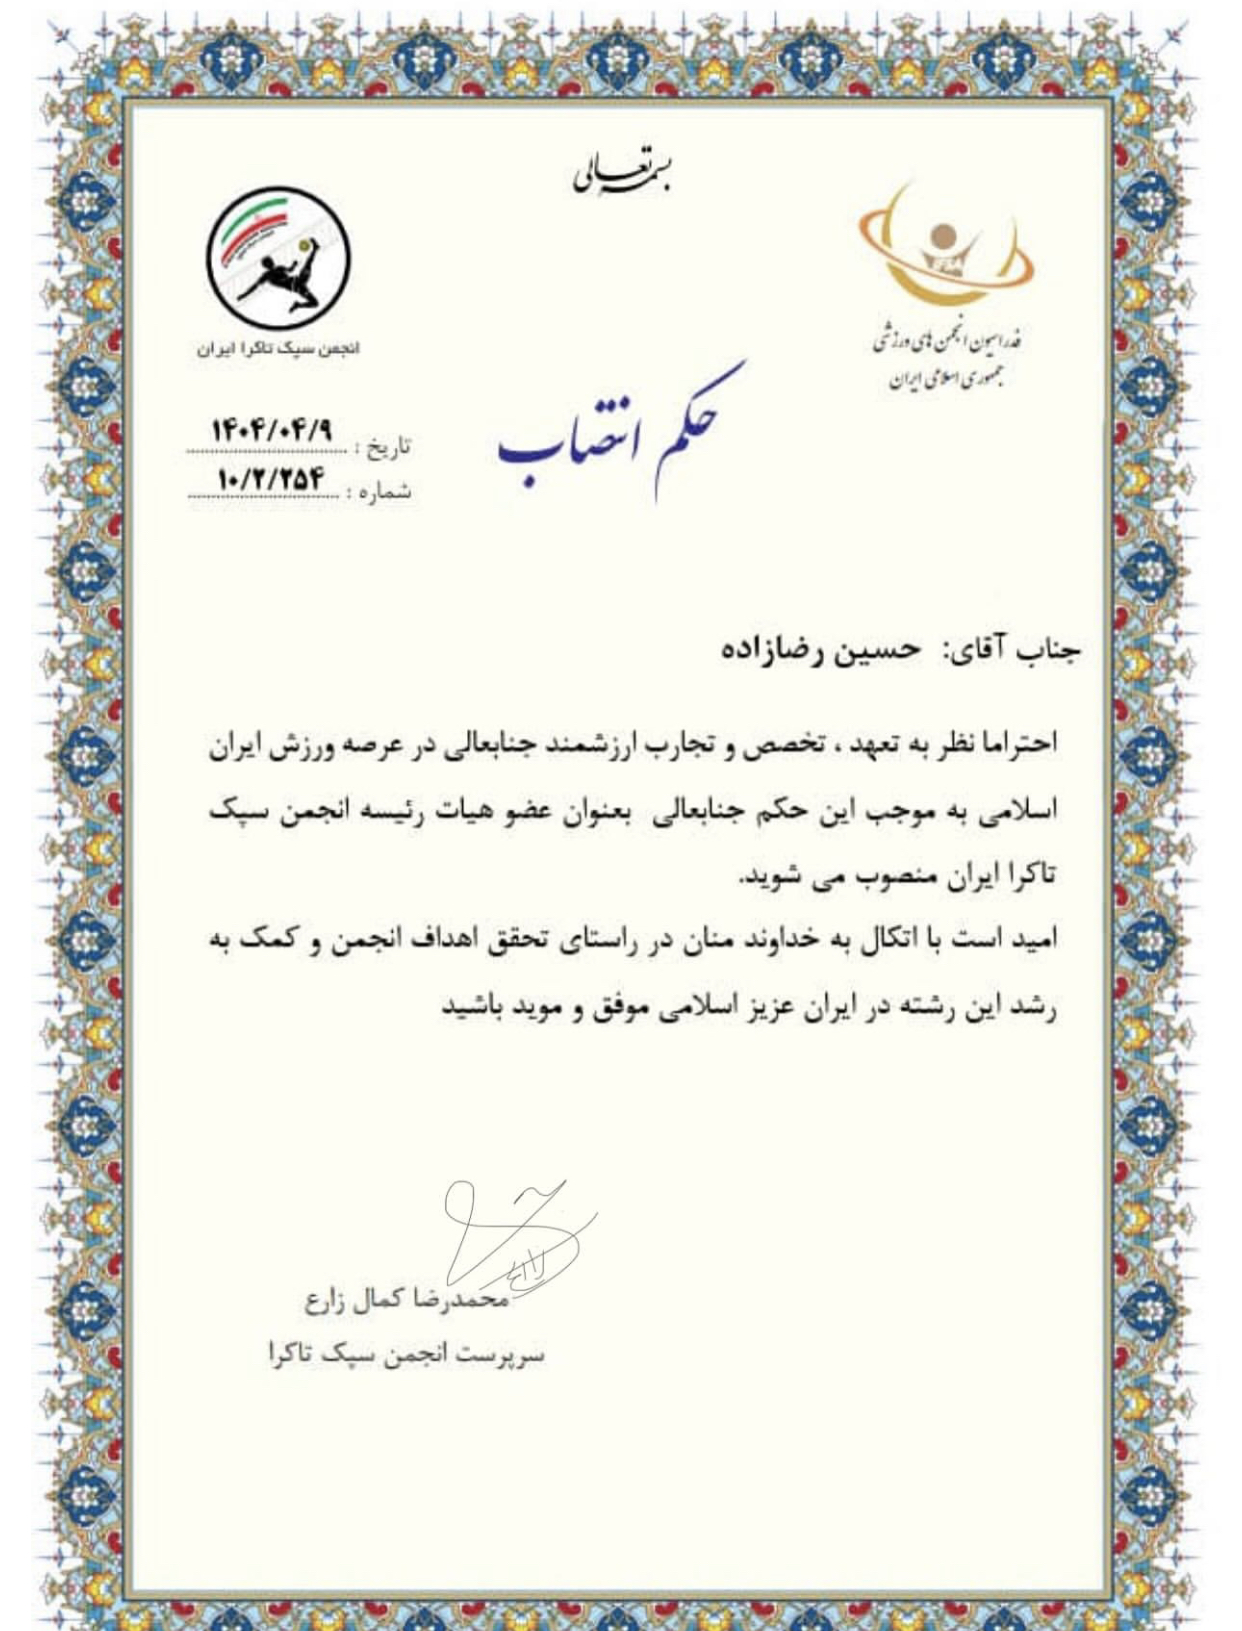 بسمه تعالی
فدراسیون انجمن های ورزشی
جمهوری اسلامی ایران
انجمن سپک تاکرا ایران
حکم انتصاب
تاریخ : ۱۴۰۴/۰۴/۹
شماره : ۱۰/۲/۲۵۴
جناب آقای: حسین رضازاده
احتراما نظر به تعهد ، تخصص و تجارب ارزشمند جنابعالی در عرصه ورزش ایران
اسلامی به موجب این حکم جنابعالی بعنوان عضو هیات رئیسه انجمن سپک
تاکرا ایران منصوب می شوید.
امید است با اتکال به خداوند منان در راستای تحقق اهداف انجمن و کمک به
رشد این رشته در ایران عزیز اسلامی موفق و موید باشید
محمدرضا کمال زارع
سرپرست انجمن سپک تاکرا